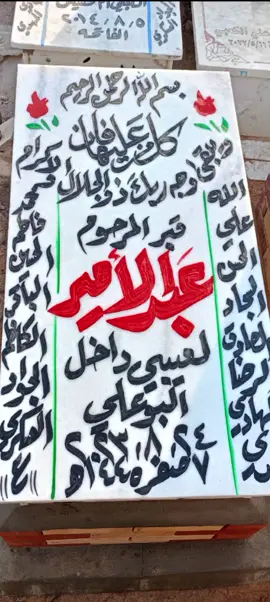 ٢٠١٤/٨/٥
الفاتحة
بسم الله الرحمن الرحيم
كل من عليها فان
ويبقى وجه ربك ذو الجلال والاكرام
قبر المرحوم
عبد الأمير
لعيبي داخل
البو علي
٢٠٢٣/٨/٢٤
٧ صفر ١٤٤٥ هـ
الله
علي
الحسن
السجاد
الصادق
الرضا
الهادي
المهدي
محمد
فاطمة
الحسين
الباقر
الكاظم
الجواد
العسكري
"ع"